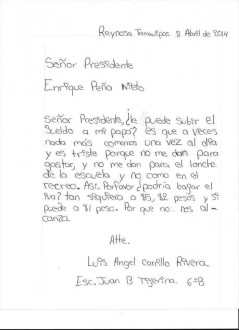 Reynosa Tamaulipas 8 Abril de 2014
Señor Presidente
Enrique Peña Nieto
Señor Presidente, ¿le puede subir el
sueldo a mi papá? es que a veces
nada más comemos una vez al día
y es triste porque no me dan para
gastar, y no me dan para el lonche
de la escuela y no como en el
recreo. Asi. Porfavor ¿podría bajar el
iva? tan siquiera a $5, $2 pesos y si
puede a $1 peso. Por que no nos al-
canza.
Atte.
Luis Angel carrillo Rivera.
Esc. Juan B Tejerina. 6°B